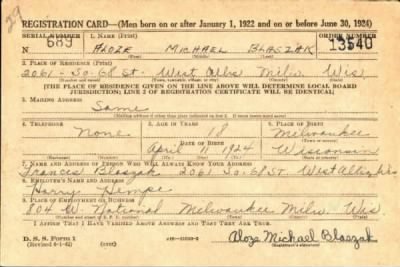 REGISTRATION CARD—(Men born on or after January 1, 1922 and on or before June 30, 1924)
SERIAL NUMBER 1. NAME (Print) ORDER NUMBER
N 689 Aloze Michael Blaszak 13540
(First) (Middle) (Last)
2. PLACE OF RESIDENCE (Print)
2061 - So. 68 St. West Allis Milw. Wis.
[THE PLACE OF RESIDENCE GIVEN ON THE LINE ABOVE WILL DETERMINE LOCAL BOARD
JURISDICTION; LINE 2 OF REGISTRATION CERTIFICATE WILL BE IDENTICAL]
3. MAILING ADDRESS
Same
4. TELEPHONE 5. AGE IN YEARS 6. PLACE OF BIRTH
None 18 Milwaukee
DATE OF BIRTH
April 11 1924 Wisconsin
7. NAME AND ADDRESS OF PERSON WHO WILL ALWAYS KNOW YOUR ADDRESS
Frances Blaszak 2061 So. 68 St. West Allis, Wis
8. EMPLOYER'S NAME AND ADDRESS
Harry Hempe
9. PLACE OF EMPLOYMENT OR BUSINESS
804 W. National Milwaukee Milw. Wis
I AFFIRM THAT I HAVE VERIFIED ABOVE ANSWERS AND THAT THEY ARE TRUE.
D. S. S. Form 1
Aloze Michael Blaszak